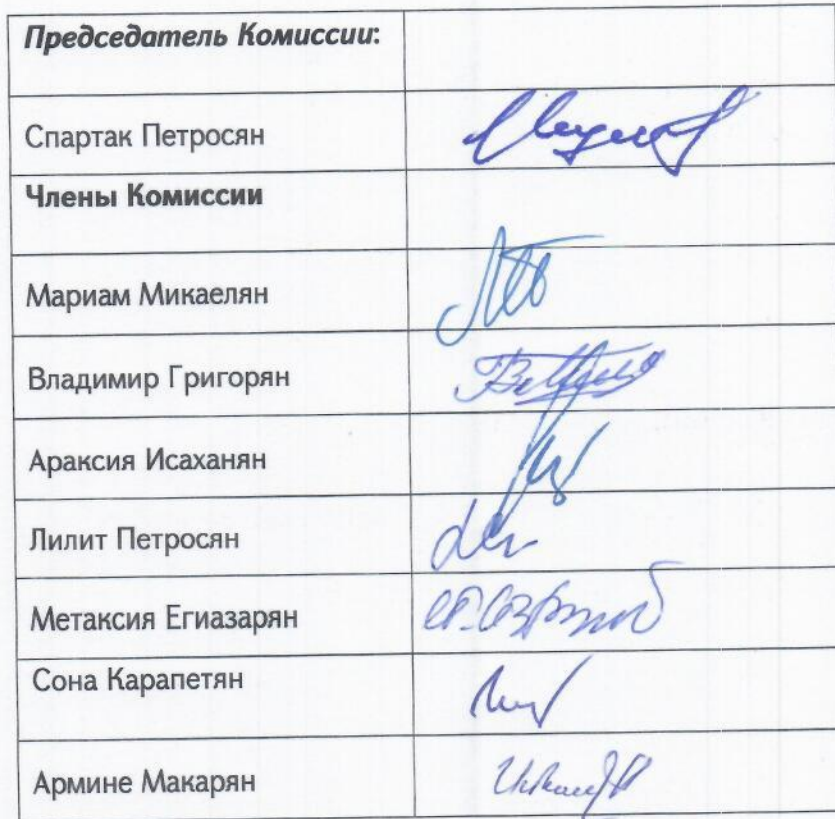 Председатель Комиссии:
Спартак Петросян
Члены Комиссии
Мариам Микаелян
Владимир Григорян
Араксия Исаханян
Лилит Петросян
Метаксия Егиазарян
Сона Карапетян
Армине Макарян